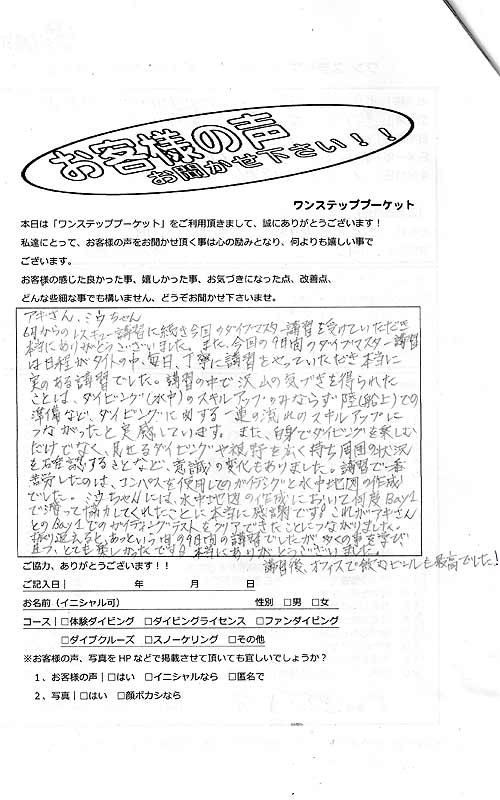 お客様の声
お聞かせ下さい！！
ワンステッププーケット
本日は「ワンステッププーケット」をご利用頂きまして、誠にありがとうございます！
私達にとって、お客様の声をお聞かせ頂く事は心の励みとなり、何よりも嬉しい事で
ございます。
お客様の感じた良かった事、嬉しかった事、お気づきになった点、改善点、
どんな些細な事でも構いません、どうぞお聞かせ下さいませ。
アキさん、ミウちゃん
6月からのレスキュー講習に続き今回のダイブマスター講習を受けていただき
本当にありがとうございました。また、今回の9日間のダイブマスター講習
は日程がタイトの中、毎日、丁寧に講習をやっていただき本当に
実のある講習でした。講習の中で沢山の気づきを得られた
ことは、ダイビング(水中)のスキルアップのみならず陸(船上)での
準備など、ダイビングに関する一連の流れのスキルアップに
つながったと実感しています。また、自身でダイビングを楽しむ
だけでなく、見せるダイビングや視野を広く持ち周囲の状況
を確認することなど、意識の変化もありました。講習で一番
苦労したのは、コンパスを使用してのガイディングと水中地図の作成
でした。ミウちゃんには、水中地図の作成において何度Bay1
で潜って協力してくれたことに本当に感謝です！これがアキさん
とのBay1でのガイディングテストをクリアできたことにつながりました。
振り返えると、あっという間の9日間の講習でしたが多くの事を学び
且つ、とても楽しかったです！本当にありがとうございました。
講習後、オフィスで飲むビールも最高でした！
ご協力、ありがとうございます！！
ご記入日｜ 年 月 日
お名前（イニシャル可） 性別 □男 □女
コース｜□体験ダイビング □ダイビングライセンス □ファンダイビング
□ダイブクルーズ □スノーケリング □その他
※お客様の声、写真をHPなどで掲載させて頂いても宜しいでしょうか？
１、お客様の声｜□はい □イニシャルなら □匿名で
２、写真｜□はい □顔ボカシなら